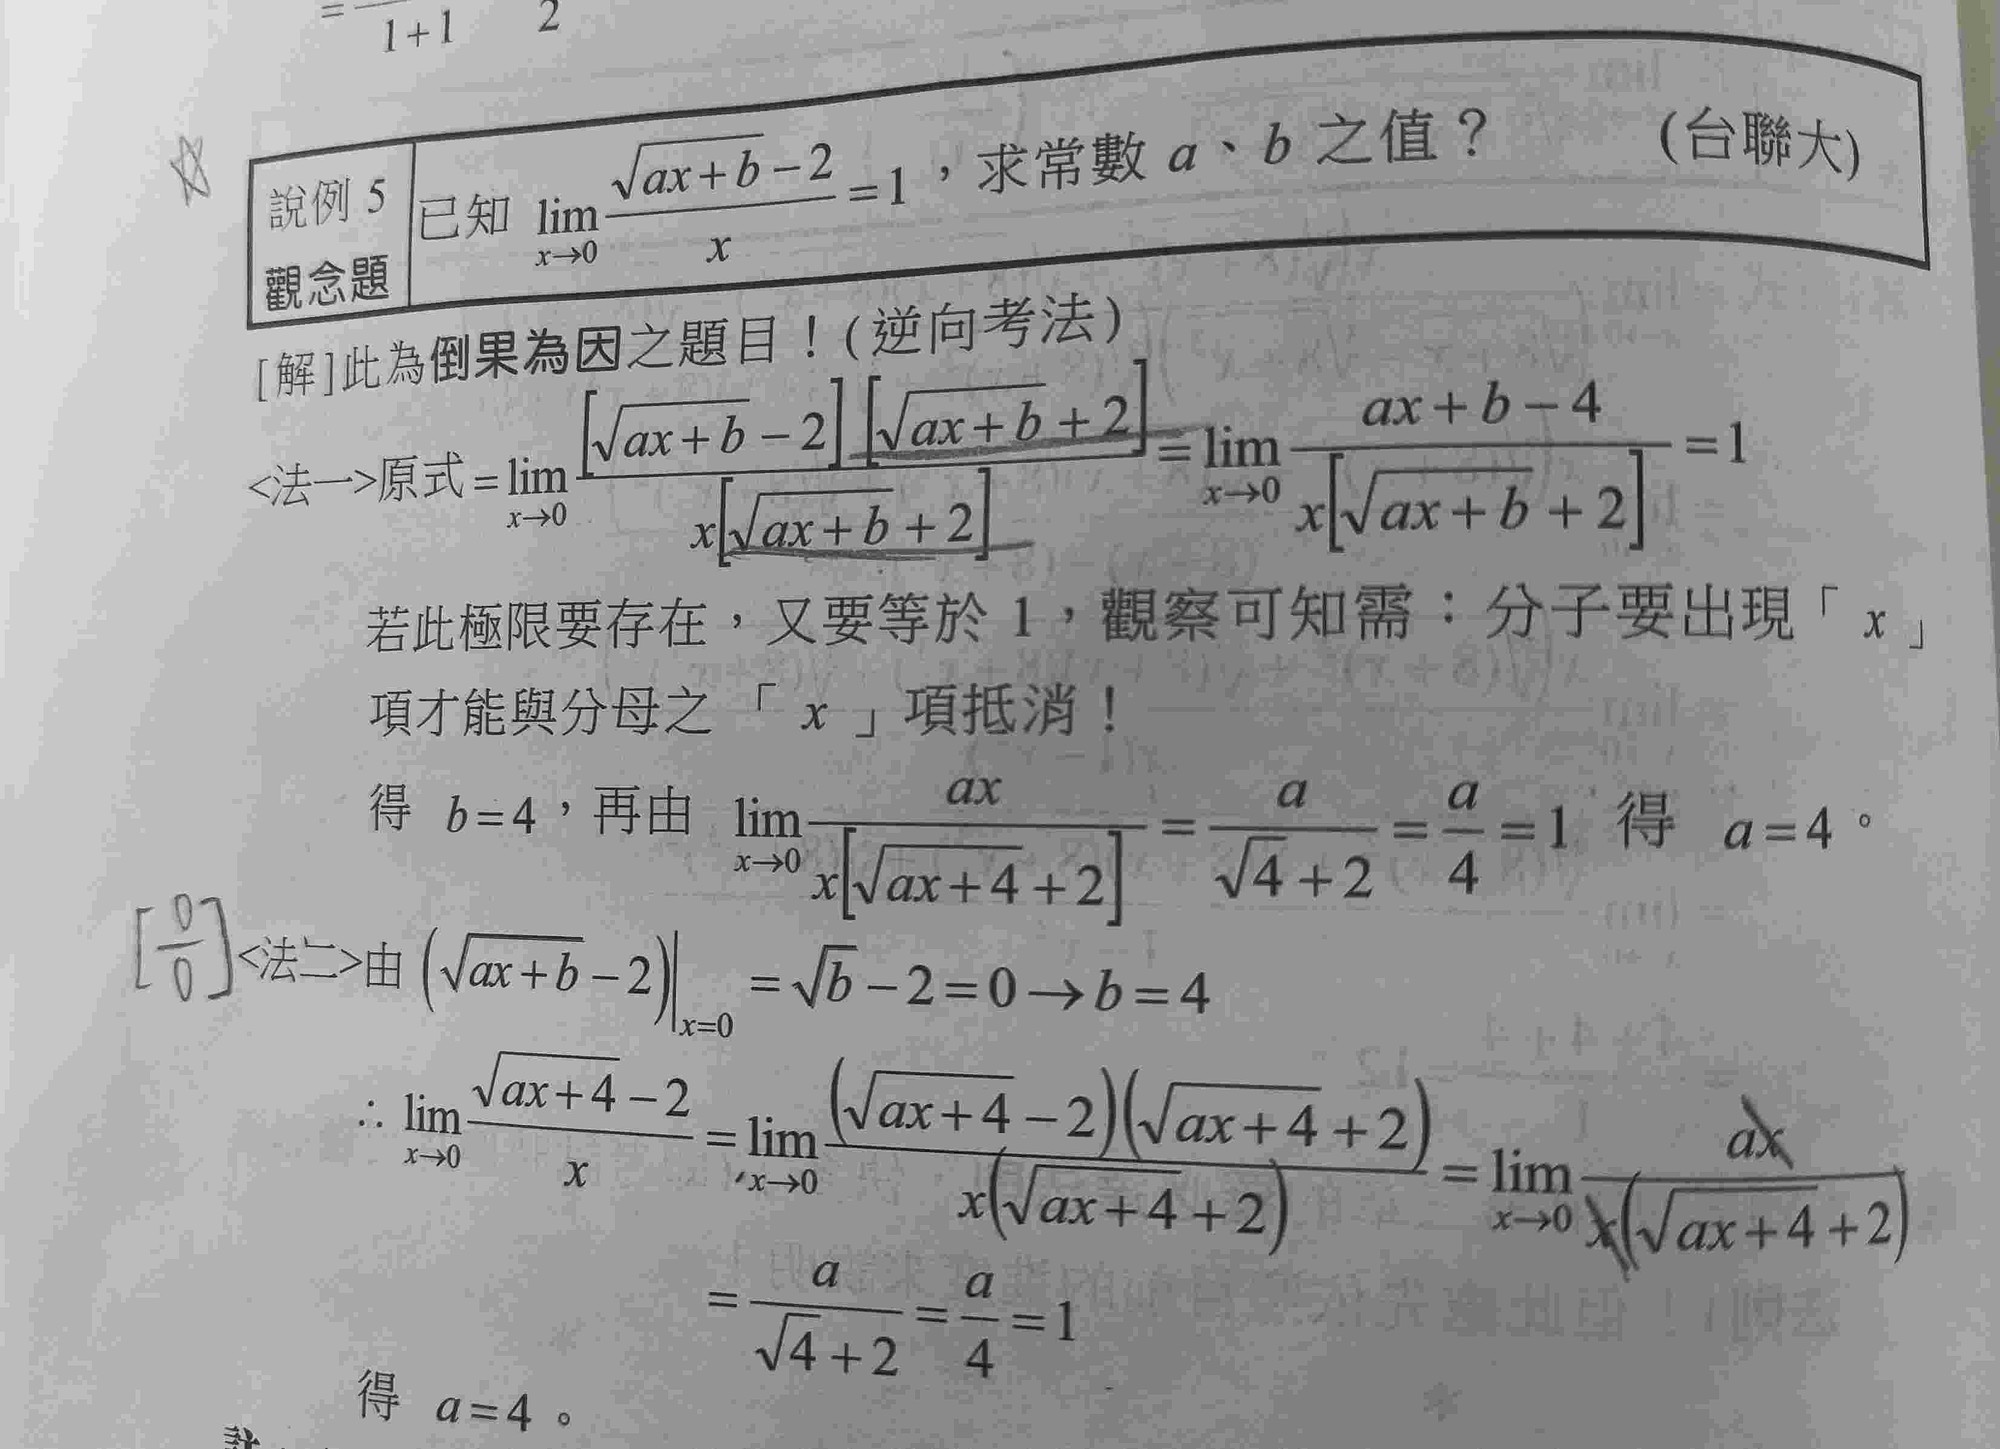 = 1+1 2
☆
說例 5 觀念題
已知 lim_{x→0} (√(ax+b) − 2)/x = 1，求常數 a、b 之值？ (台聯大)
[解]此為倒果為因之題目！(逆向考法)
<法一>原式 = lim_{x→0} [√(ax+b) − 2][√(ax+b) + 2] / x[√(ax+b) + 2] = lim_{x→0} (ax+b−4) / x[√(ax+b) + 2] = 1
若此極限要存在，又要等於 1，觀察可知需：分子要出現「 x 」
項才能與分母之 「 x 」項抵消！
得 b=4，再由 lim_{x→0} ax / x[√(ax+4) + 2] = a/(√4 + 2) = a/4 = 1 得 a=4。
[0/0] <法二>由 (√(ax+b) − 2)|_{x=0} = √b − 2 = 0 → b = 4
∴ lim_{x→0} (√(ax+4) − 2)/x = lim_{x→0} (√(ax+4) − 2)(√(ax+4) + 2) / x(√(ax+4) + 2) = lim_{x→0} ax / x(√(ax+4) + 2)
= a/(√4 + 2) = a/4 = 1
得 a=4。